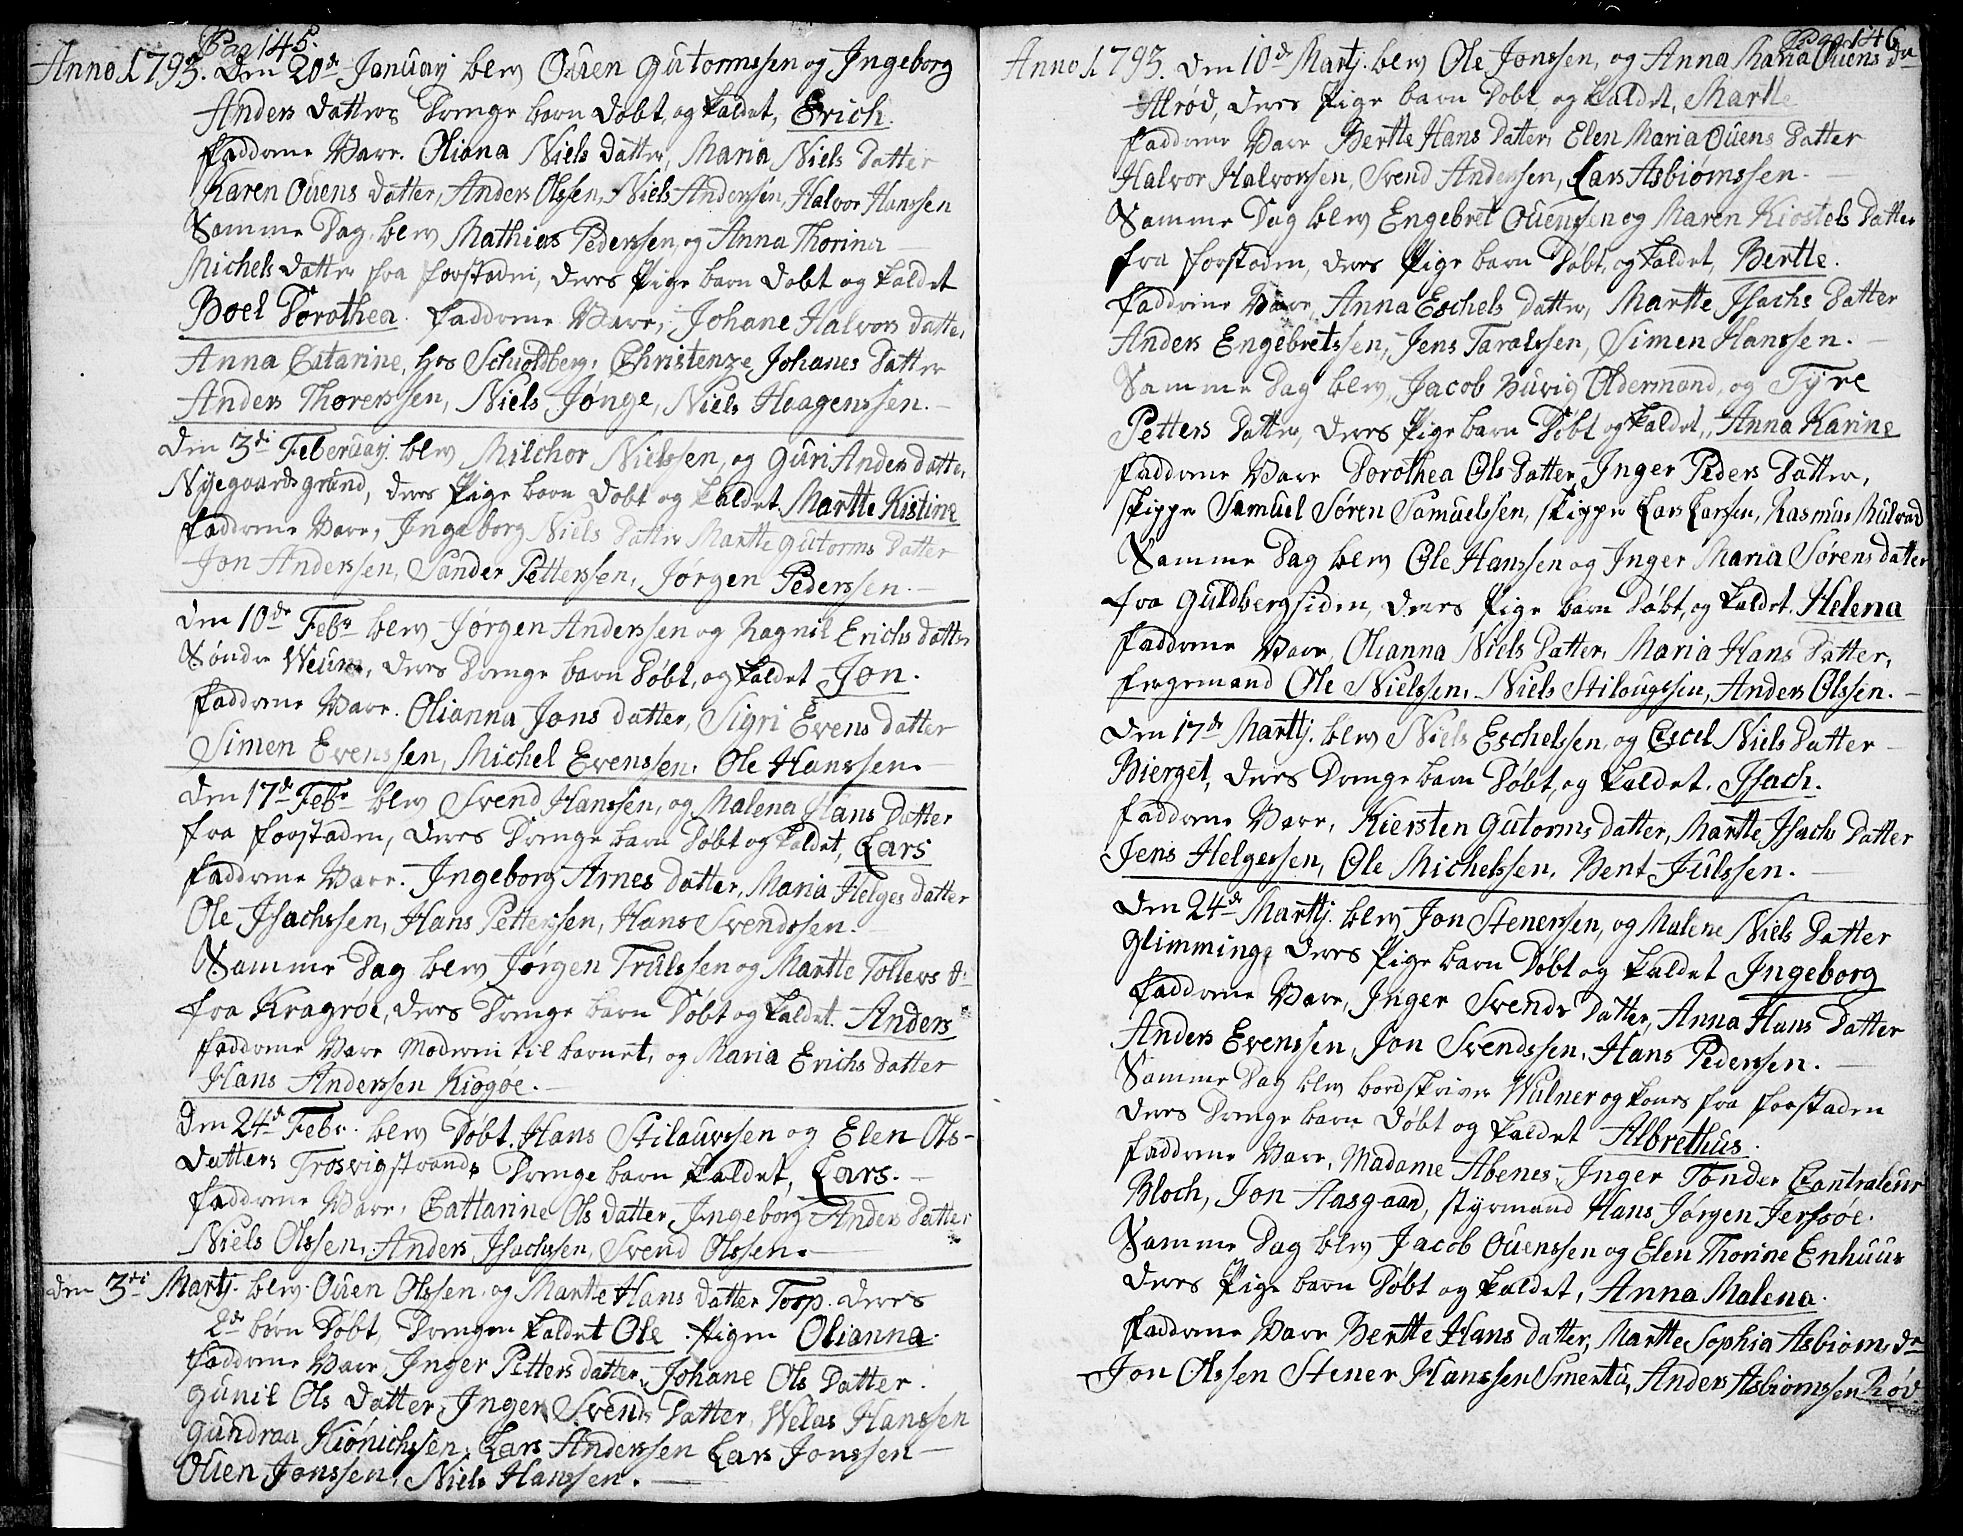 Pag 145.
Anno 1793. Den 20de Januarij blev Ouen Gutormssen og Ingeborg
Anders Datters Drenge barn Døbt, og kaldet, Erich.
Faddrene Vare. Oliana Niels Datter, Maria Niels Datter
Karen Ouens Datter, Anders Olssen, Niels Anderssen, Halvor Hanssen
Samme Dag blev Mathias Pederssen, og Anna Thorina
Michels Datter fra Forstaden, Deres Pige barn Døbt og kaldet
Boel Dorothea. Faddrene Vare, Johane Halvors Datter,
Anna Catarine, hos Schioldberg, Christenze Johanes Datter
Anders Thorerssen, Niels Jønge, Niels Haagenssen.
Den 3di Feberuarij blev Milchor Nielssen, og Guri Anders Datter,
Nyegaards grund, Deres Pige barn Døbt og kaldet Martte Kistine
Faddrene Vare, Ingeborg Niels Datter Martte Gutorms Datter
Jon Anderssen, Sander Petterssen, Jørgen Pederssen.
Den 10de Febr blev Jørgen Anderssen og Ragnil Erichs Datter
Søndre Weum, Deres Drenge barn Døbt, og kaldet Jon.
Faddrene Vare. Olianna Jons Datter, Sigri Evens Datter
Simen Evenssen, Michel Evenssen, Ole Hanssen.
Den 17de Febr blev Svend Hanssen, og Malena Hans Datter
fra Forstaden, Deres Drenge barn Døbt og kaldet, Lars
Faddrene Vare. Ingeborg Arnes Datter, Maria Helges Datter
Ole Isachssen, Hans Petterssen, Hans Svendssen.
Samme Dag blev Jørgen Trulssen og Martte Tollevs Dr
fra Kragrøe, Deres Drenge barn Døbt og kaldet. Anders
Faddrene Vare Moderen til barnet, og Maria Erichs Datter
Hans Anderssen Kiøgøe.
Den 24de Febr. blev Døbt. Hans Stilaurssen og Elen Ols-
Datters Trosvigstrands Drenge barn kaldet, Lars.
Faddrene Vare, Cattarine Ols Datter, Ingeborg Anders Datter
Niels Olssen, Anders Isachssen, Svend Olssen.
Den 3di Martj. blev Ouen Olssen, og Martte Hans Datter Torp. Deres
2de børn Døbt, Drengen kaldet Ole. Pigen Olianna.
Faddrene Vare, Inger Petters Datter, Johane Ols Datter.
Gunil Ols Datter, Inger Svends Datter, Welas Hanssen
Gundraa Kiønichssen, Lars Anderssen Lars Jonssen
Ouen Jonssen, Niels Hanssen.
Pag 146
Anno 1793. Den 10de Martj. blev Ole Jonssen, og Anna Maria Ouens Dr
Alrød, Deres Pige barn Døbt, og kaldet, Martte
Faddrene Vare Bertte Hans Datter, Elen Maria Ouens Datter
Halvor Halvorssen, Svend Anderssen, Lars Asbiørnssen.
Samme Dag blev Engebret Ouenssen og Maren Kiostels Datter
fra Forstaden, Deres Pige barn Døbt, og kaldet, Bertte.
Faddrene Vare, Anna Eschels Datter, Martte Isachs Datter
Anders Engebretssen, Jens Taralssen, Simen Hanssen.
Samme Dag blev, Jacob Huvig Oldermand, og Tyre
Petters Datter, Deres Pige barn Døbt og kaldet, Anna Karine
Faddrene Vare Dorothea Ols Datter, Inger Peders Datter,
Skipper Samuel Søren Samuelssen, Skipper Lars Larssen, Rasmus Mulvad
Samme Dag blev Ole Hanssen og Inger Maria Sørens Datter
fra Guldbergsiden, Deres Pige barn Døbt, og kaldet. Helena
Faddrene Vare, Olianna Niels Datter, Maria Hans Datter,
Færgemand Ole Nielssen, Niels Stilougssen, Anders Olssen.
Den 17de Marttj. blev Niels Eschelssen, og Cecel Niels Datter
Bierget, Deres Drenge barn Døbt, og kaldet. Isach.
Faddrene Vare, Kiersten Gutorms Datter, Martte Isachs Datter
Jens Helgessen, Ole Michelssen, Bent Julssen.
Den 24de Marttj. blev Jon Stenerssen, og Malene Niels Datter
Glimminge Deres Pige barn Døbt og kaldet Ingeborg
Faddrene Vare, Inger Svends Datter, Anna Hans Datter
Anders Evenssen, Jon Svendssen, Hans Pederssen.
Samme Dag blev bordskriver Wulner og kones fra Forstaden
Deres Drenge barn Døbt og kaldet Albrethus.
Faddrene Vare, Madame Abenes, Inger Tønder Contraleur
Bloch, Jon Aasgaard, Styrmand Hans Jørgen Jerfsøe.
Samme Dag blev Jacob Ouenssen og Elen Thorine Enhuus
Deres Pige barn Døbt og kaldet, Anna Malena.
Faddrene Vare Bertte Hans Datter, Martte Sophia Asbiørns Dr
Jon Olssen Stener Hanssen Smertu, Anders Asbiørnssen Rød